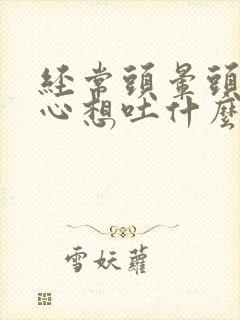 經常頭暈頭
心想吐什麼
雪妖蘿